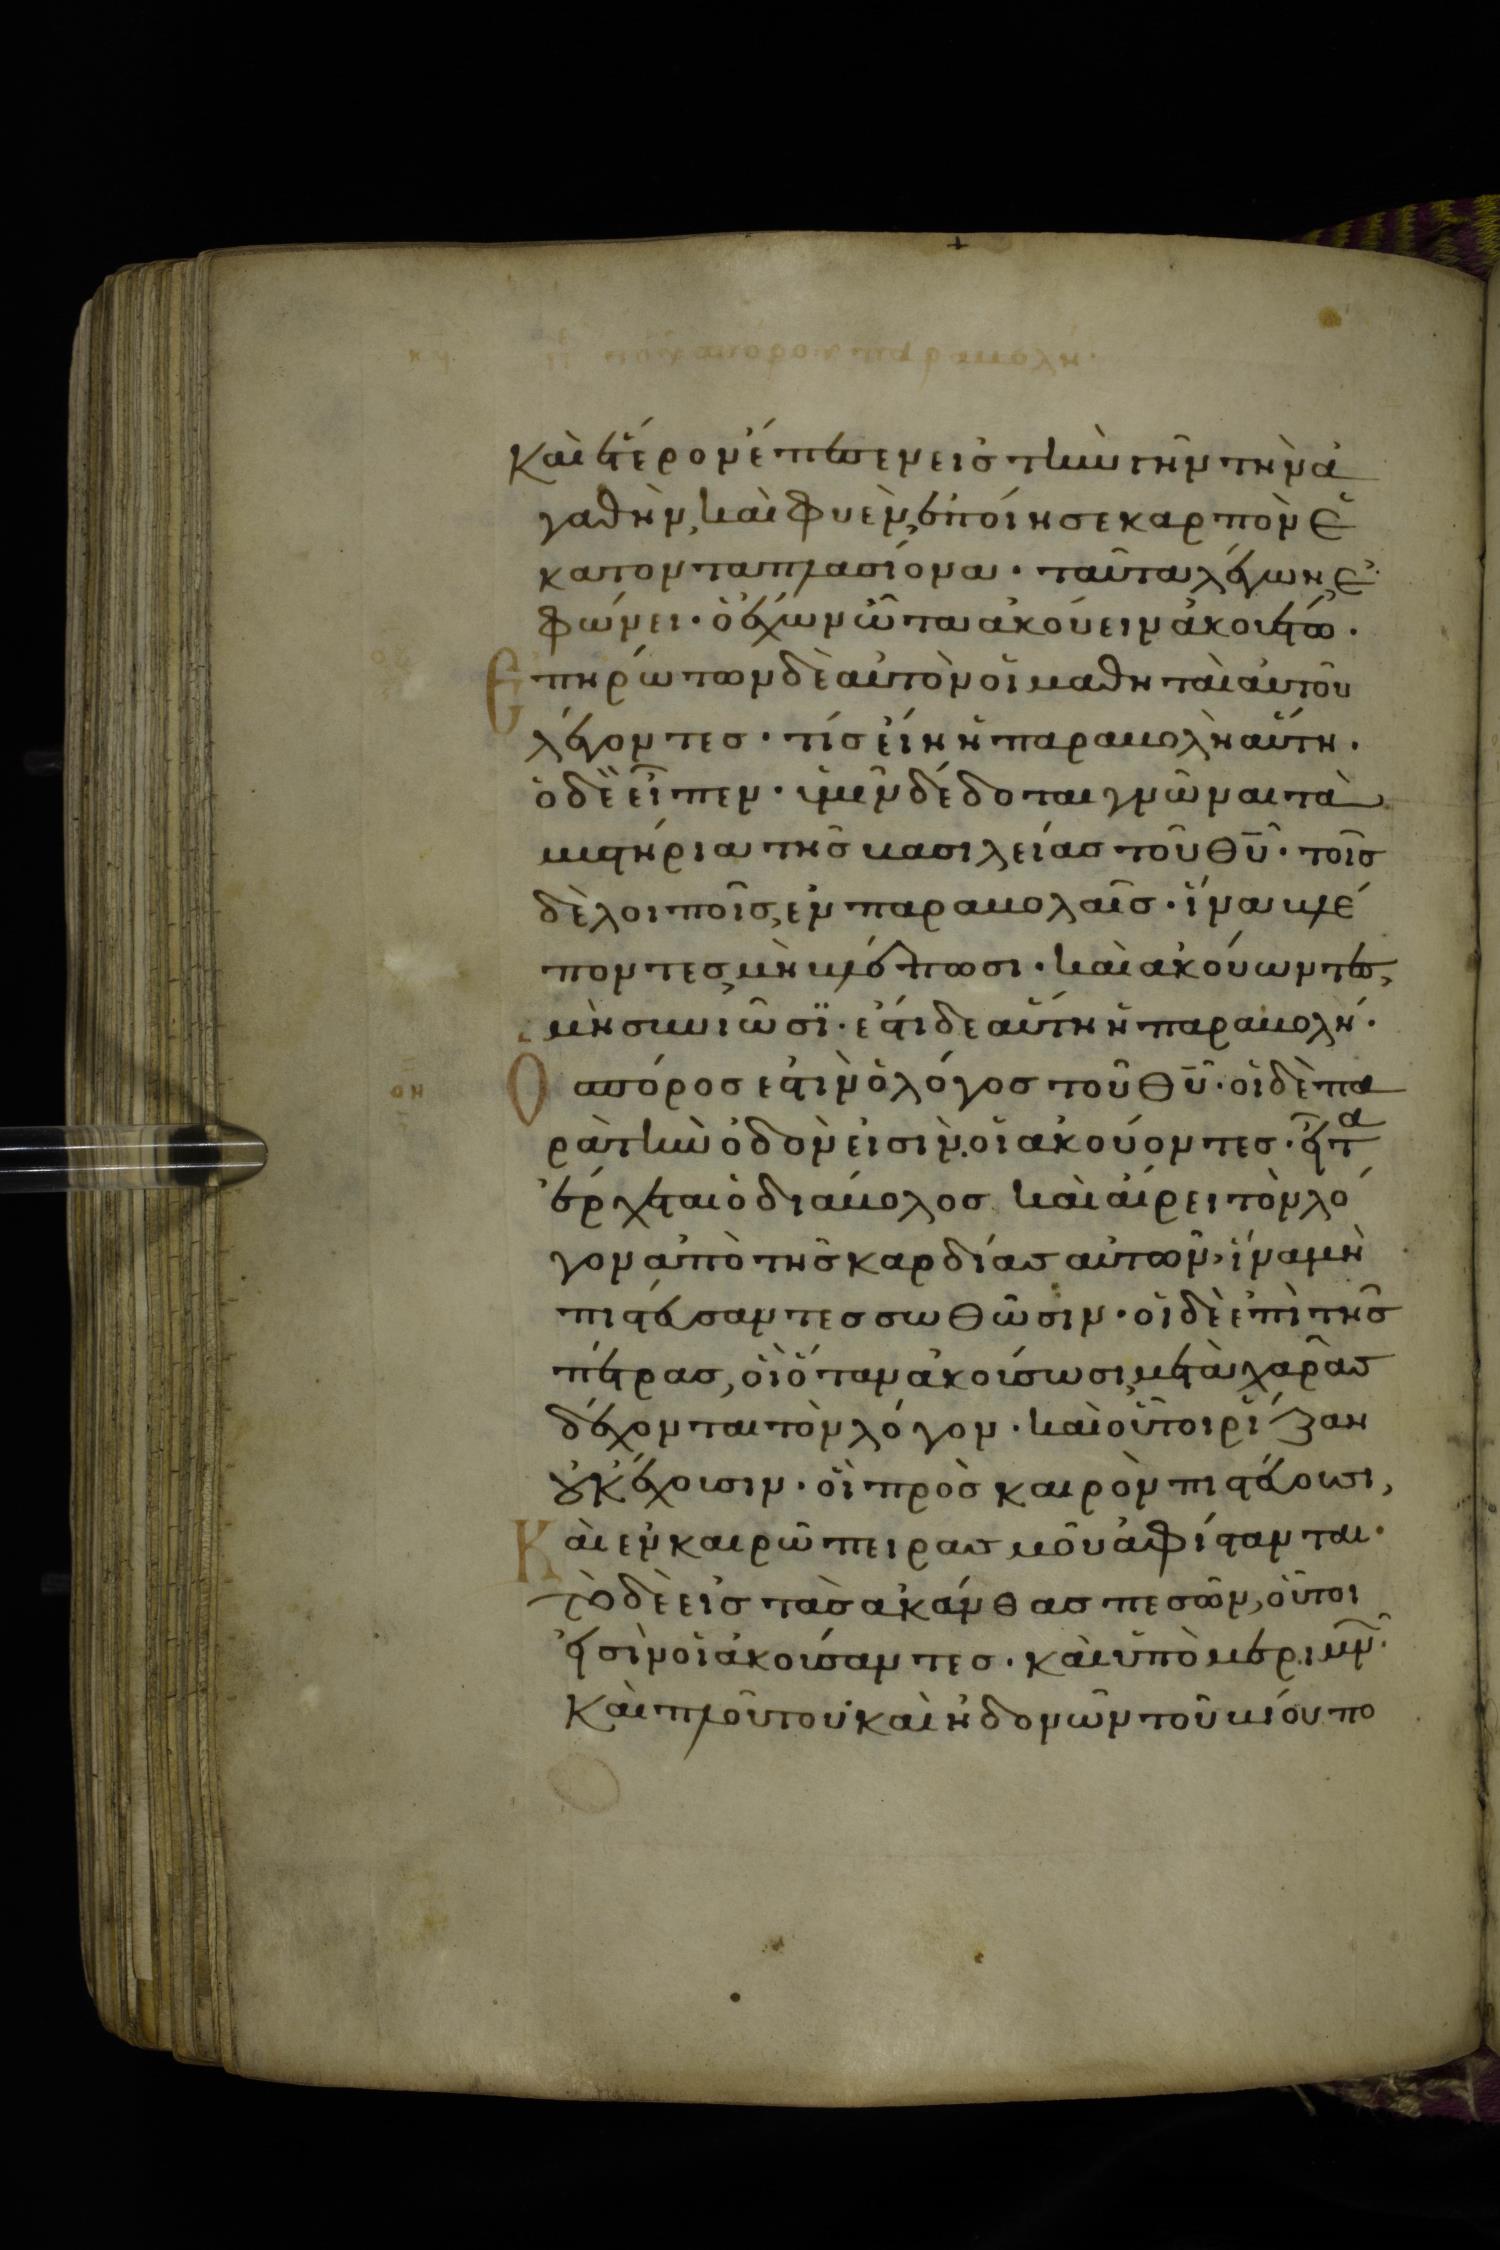 καὶ ἕτερον ἔπεσεν εἰς τὴν γῆν τὴν ἀ
γαθὴν, καὶ φυὲν, ἐποίησε καρπὸν ἑ
κατονταπλασίονα · ταῦτα λέγων, ἐ
φώνει · ὁ ἔχων ὦτα ἀκούειν ἀκουέτω ·
Ἐπηρώτων δὲ αὐτὸν οἱ μαθηταὶ αὐτοῦ
λέγοντες · τίς εἴη ἡ παραβολὴ αὕτη ·
ὁ δὲ εἶπεν · ὑμῖν δέδοται γνῶναι τὰ
μυστήρια τῆς βασιλείας τοῦ θ̅υ̅ · τοῖς
δὲ λοιποῖς, ἐν παραβολαῖς · ἵνα βλέ
ποντες, μὴ βλέπωσι · καὶ ἀκούωντες,
μὴ συνιῶσϊ · ἔστι δε αὕτη ἡ παραβολή ·
Ὁ σπόρος ἐστὶν ὁ λόγος τοῦ θ̅υ̅ · οἱ δὲ πα
ρὰ τὴν ὁδὸν εἰσὶν, οἱ ἀκούοντες · εἶτα
ἔρχεται ὁ διάβολος καὶ αἴρει τὸν λό
γον ἀπὸ τῆς καρδίας αὐτῶν, ἵνα μὴ
πιστεύσαντες σωθῶσιν · οἱ δὲ ἐπὶ τῆς
πέτρας, οἳ ὅταν ἀκούσωσι, μετὰ χαρᾶς
δέχονται τὸν λόγον · καὶ οὗτοι ῥίζαν
οὐκ ἔχουσιν · οἳ πρὸς καιρὸν πιστεύουσι,
Καὶ ἐν καιρῶ πειρασμοῦ ἀφίστανται ·
τὸ δὲ εἰς τὰς ἀκάνθας πεσὼν, οὗτοι
εἰσὶν οἱ ἀκούσαντες · καὶ ὑπὸ μεριμνῶν
καὶ πλούτου καὶ ἡδονῶν τοῦ βίου πο